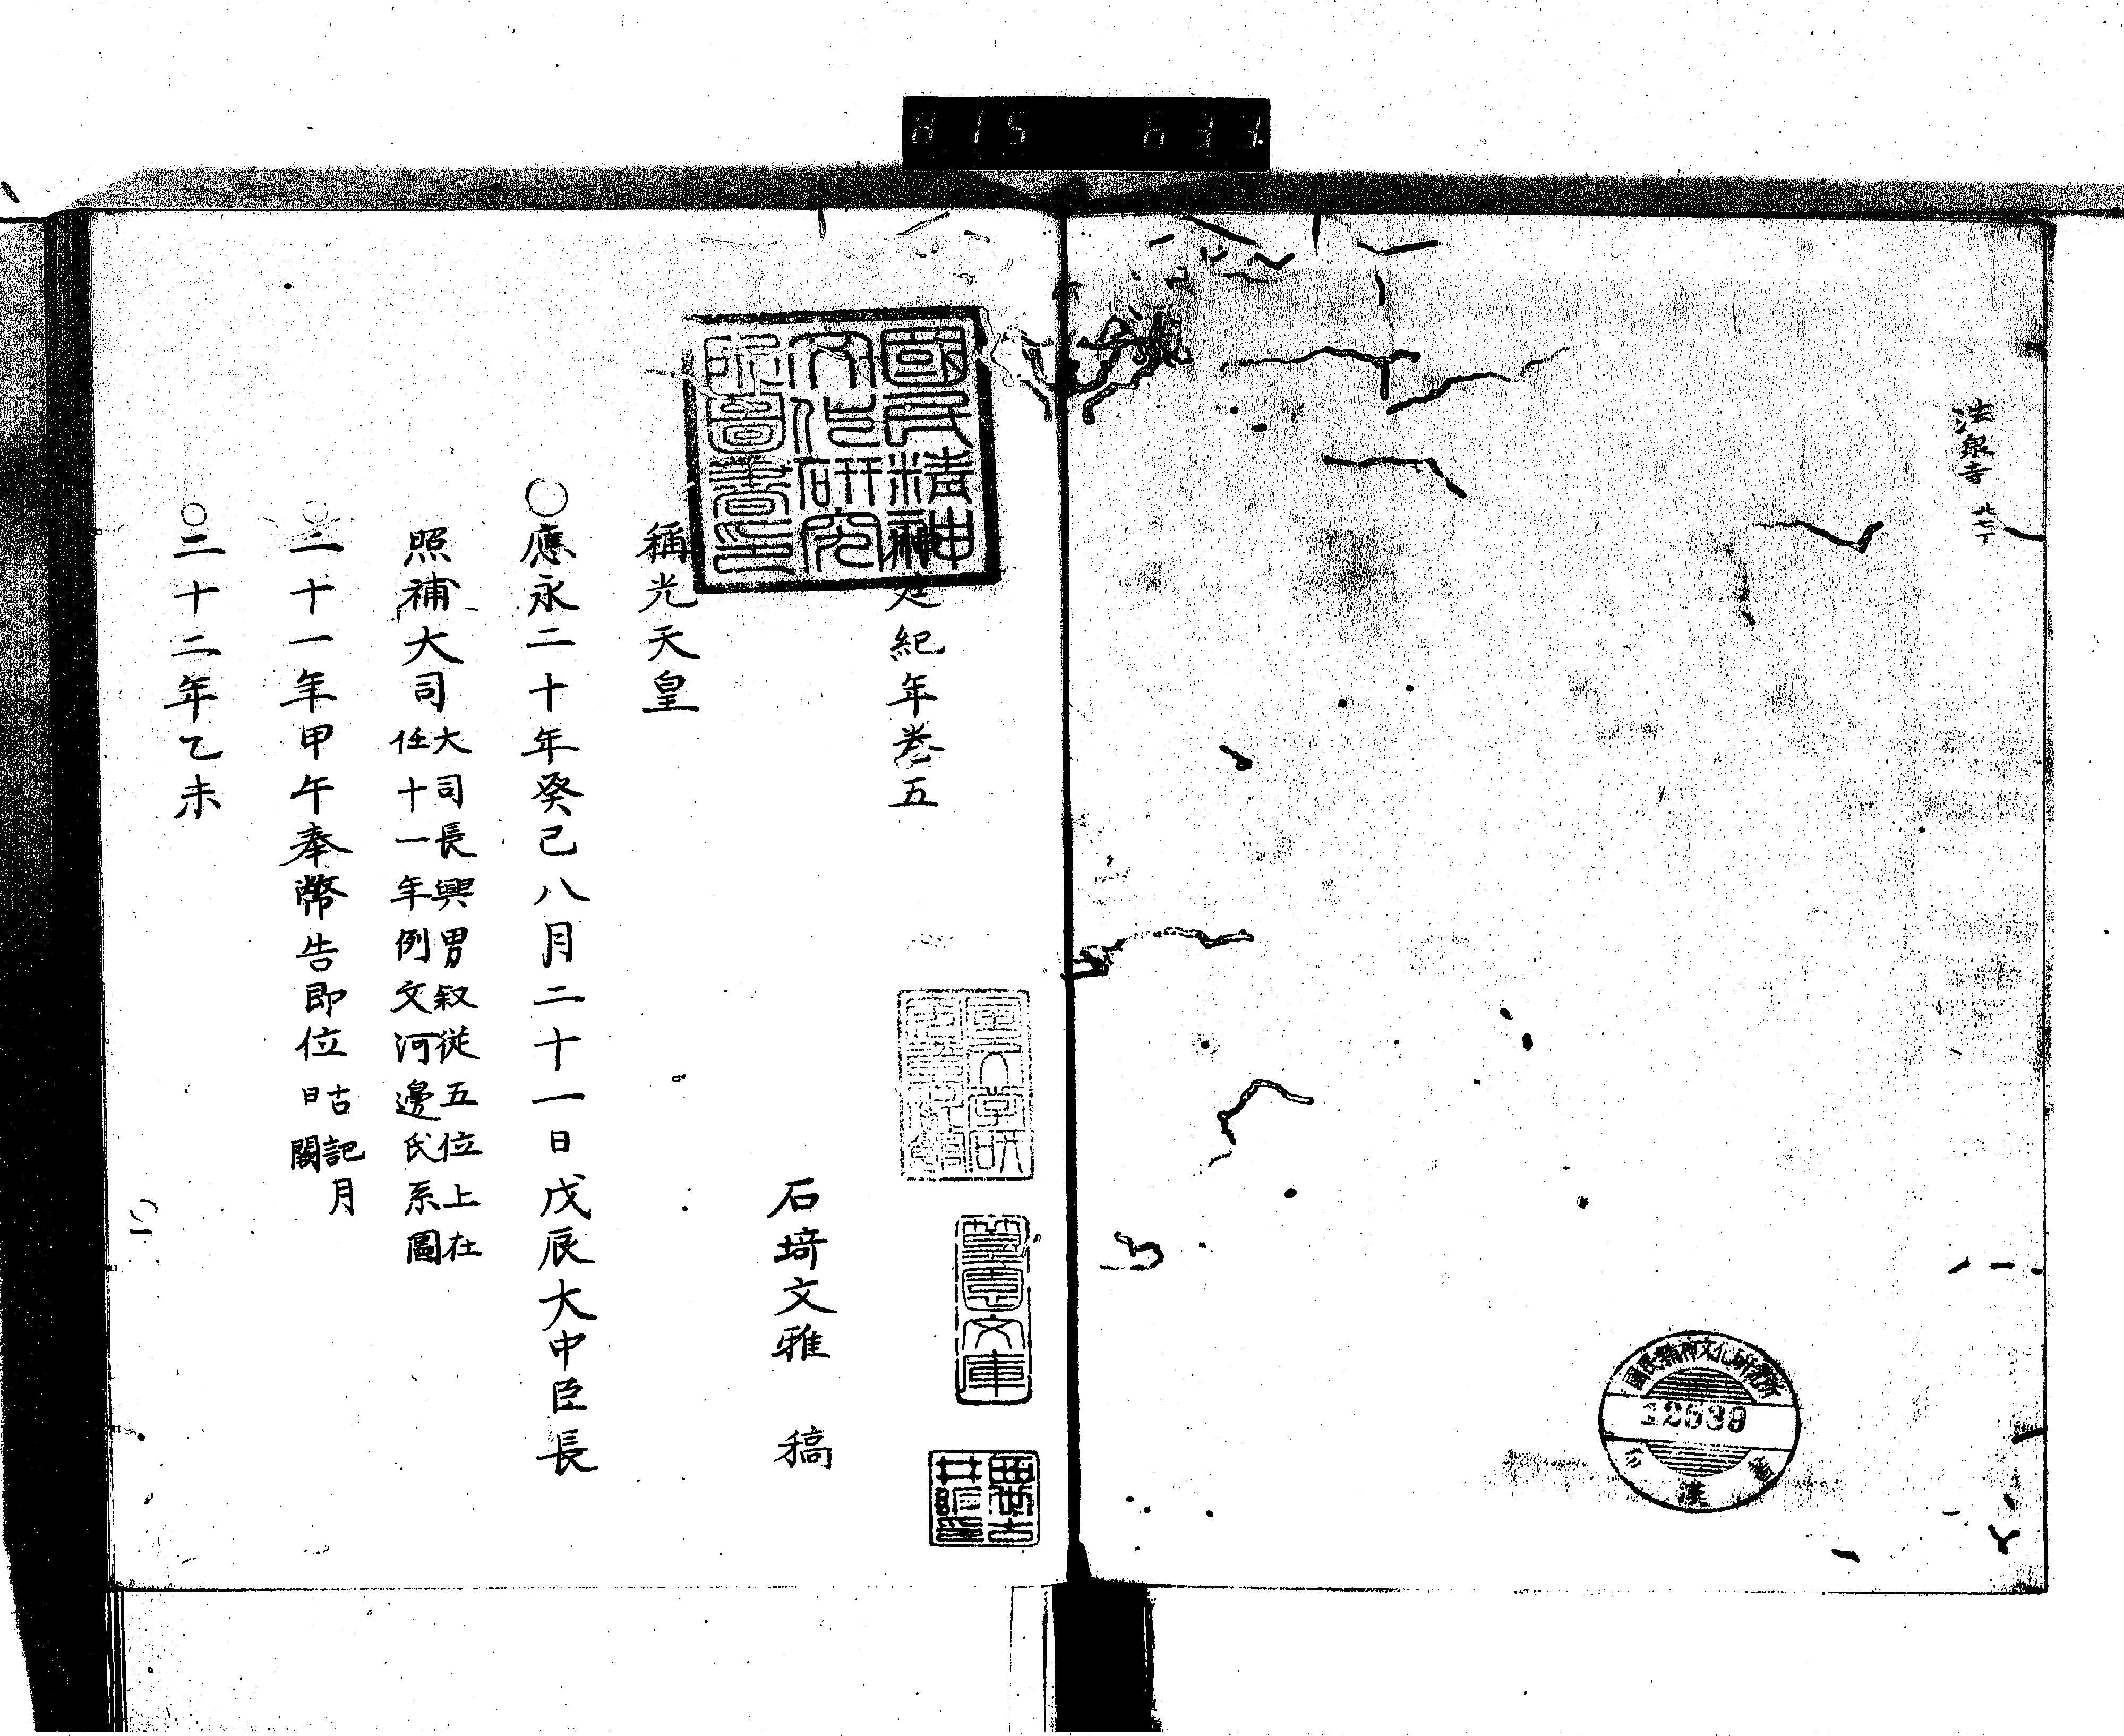 815 633
法泉寺
國民精神文化研究所
12539
藏書
國民精神
文化研究
所圖書印
紀年卷五
文庫
石埼文雅 稿
稱光天皇
○應永二十年癸巳八月二十一日戊辰大中臣長
照補大司
大司長興男叙従五位上在
任十一年例文河邊氏系圖
○二十一年甲午奉幣告即位
古記月
日闕
○二十二年乙未